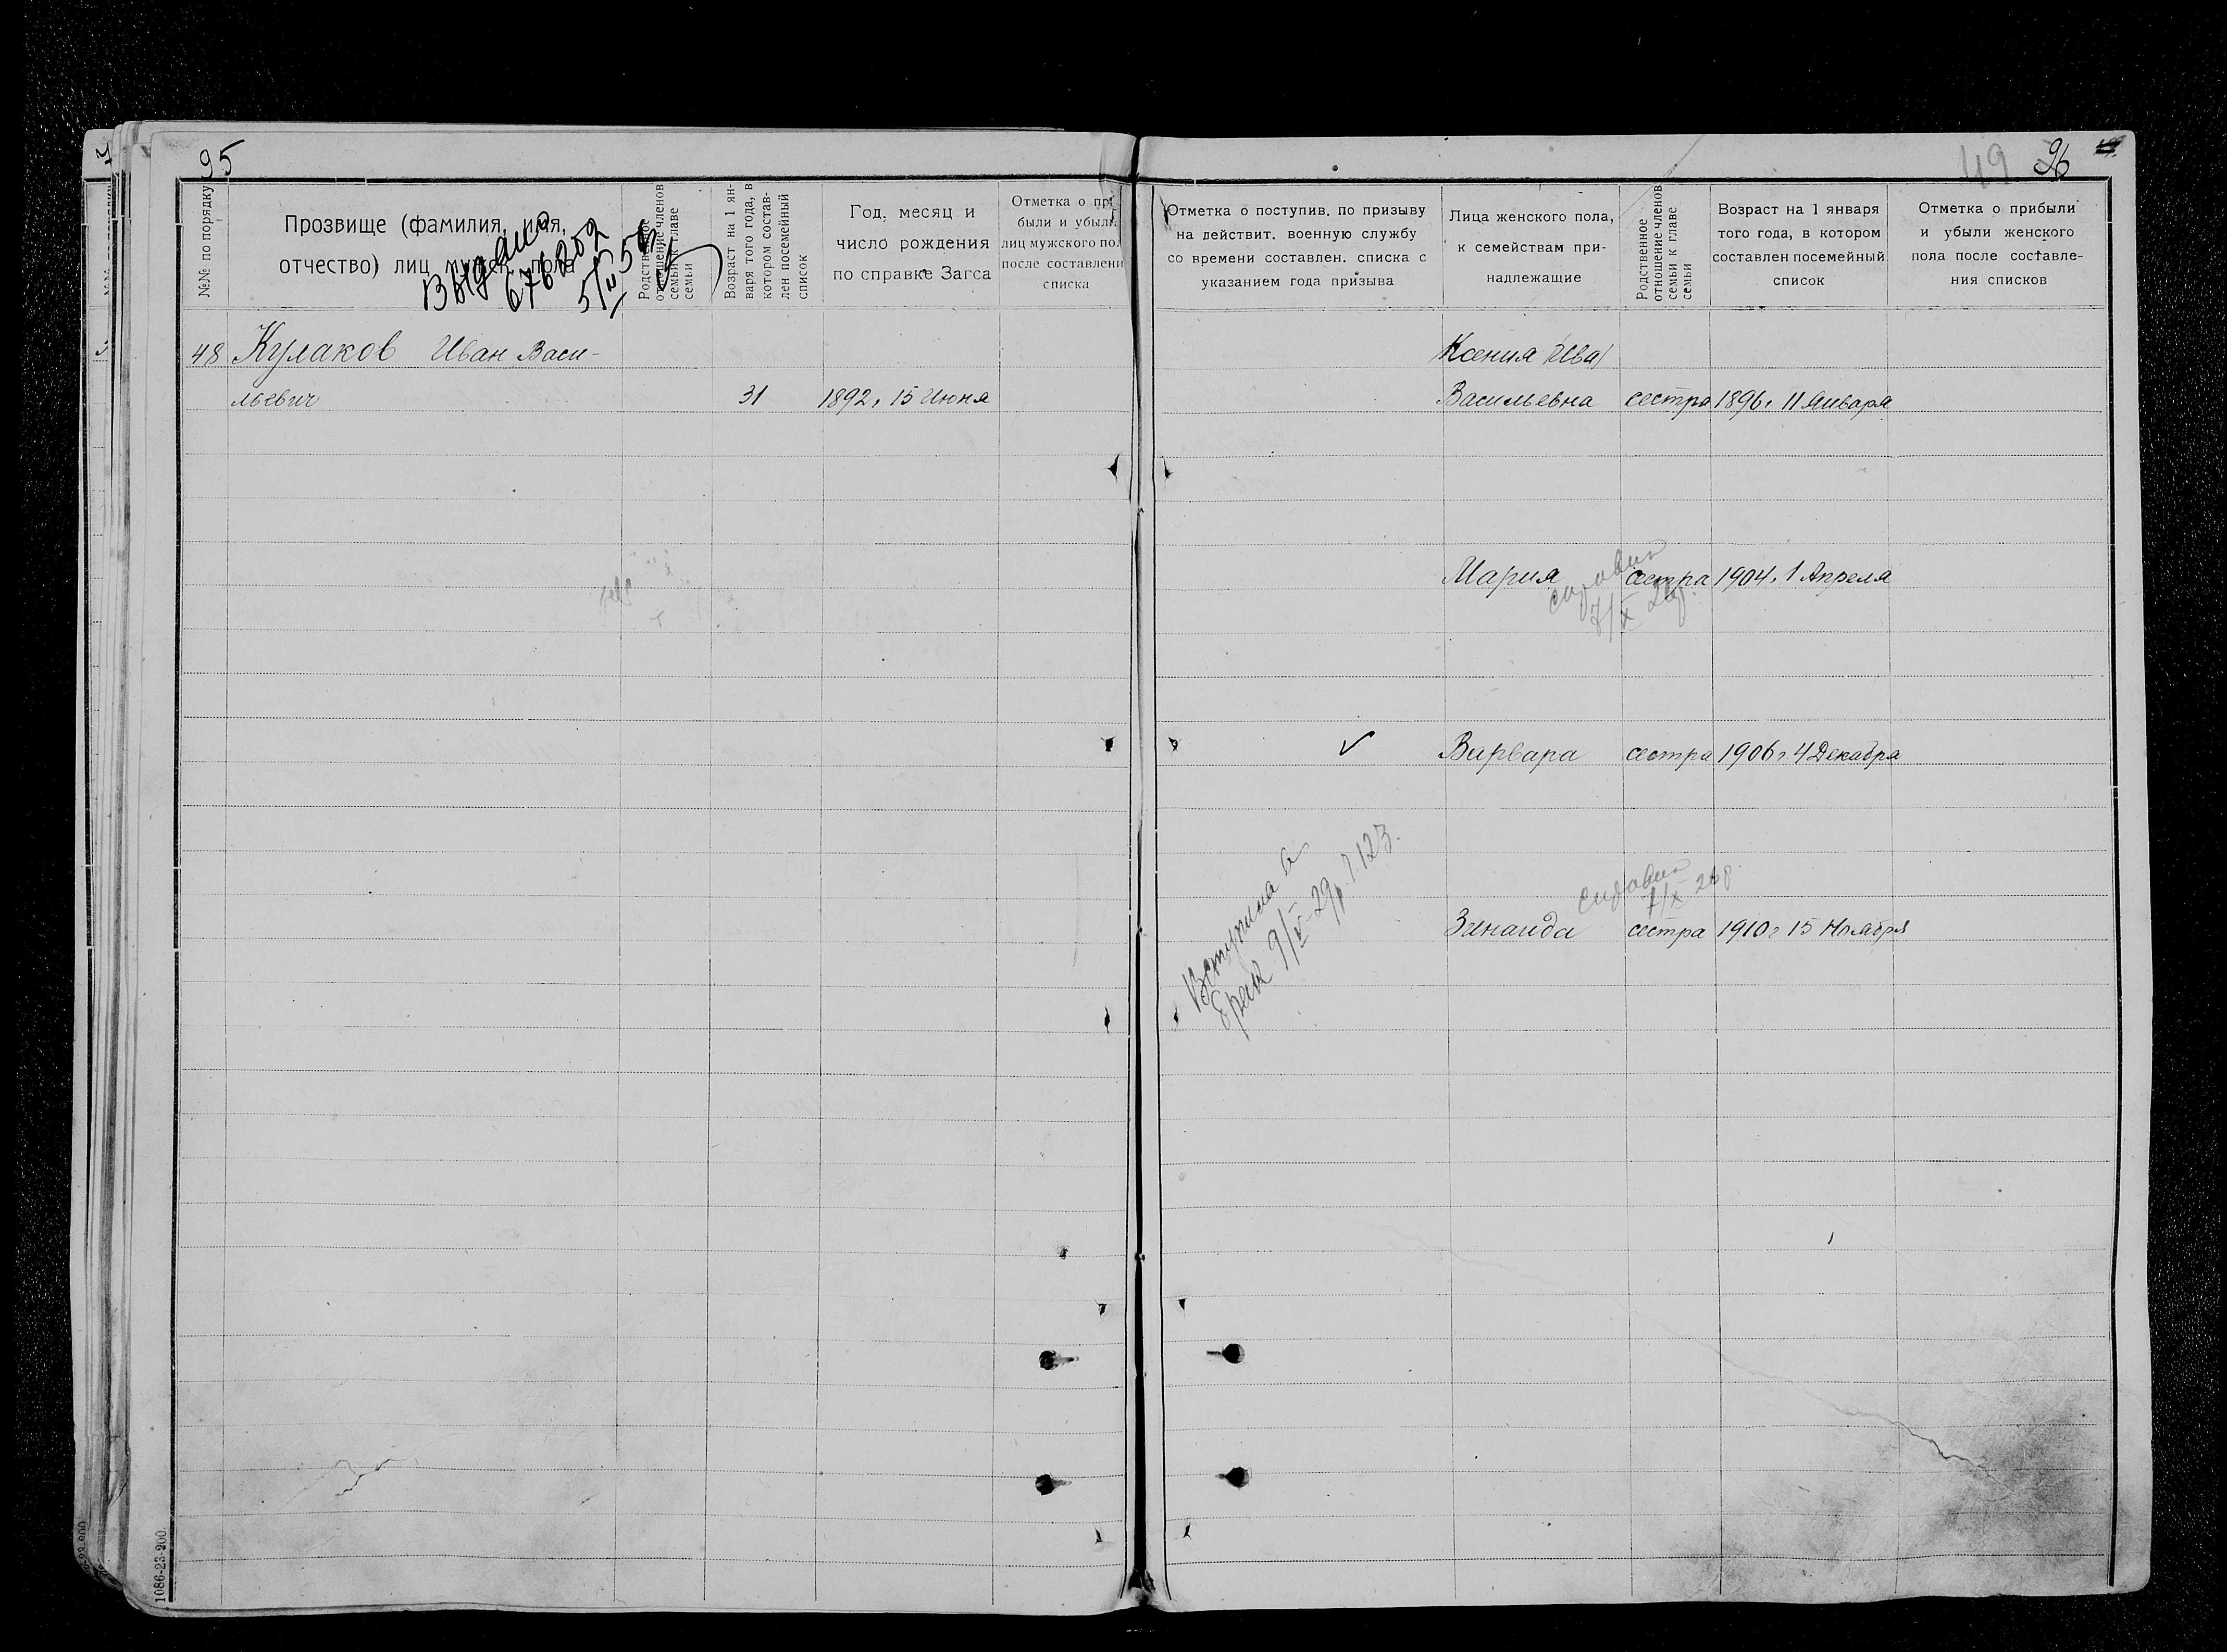 95
№№ по порядку
Прозвище (фамилия, имя,
отчество) лиц мужск. пола
Родственное
отношение членов
семьи к главе
семьи
Возраст на 1 ян-
варя того года, в
котором состав-
лен посемейный
список
Год, месяц и
число рождения
по справке Загса
Отметка о при
были и убыли
лиц мужского пол
после составлени
списка
Выдана
5/II 56
48 Кулаков Иван Васи-
льевич 31 1892 г 15 Июня
1086-23-200.
49 96
Отметка о поступив. по призыву
на действит. военную службу
со времени составлен. списка с
указанием года призыва
Лица женского пола,
к семействам при-
надлежащие
Родственное
отношение членов
семьи к главе
семьи
Возраст на 1 января
того года, в котором
составлен посемейный
список
Отметка о прибыли
и убыли женского
пола после составле-
ния списков
Ксения
Васильевна сестра 1896 г 11 Января
Мария сестра 1904 г 1 Апреля
7/X 26 г.
Варвара сестра 1906 г 4 Декабря
Вступила в
брак 9/V-29 г. 123.
7/X 26 г.
Зинаида сестра 1910 г 15 Ноября